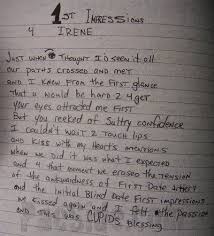 1st Impressions
4 IRENE
Just when I thought I'd seen it all
our paths crossed and met
and I knew from the first glance
that u would be hard 2 4get
Your eyes attracted me first
But you reeked of sultry confidence
I couldn't wait 2 touch lips
and kiss with my hearts mentions
when we did it was what I expected
and 4 that moment we erased the tension
of the awkwardness of First Date jitters
and the initial Blind Date First impressions
we kissed again and I felt the passion
and this was CUPIDS Blessing